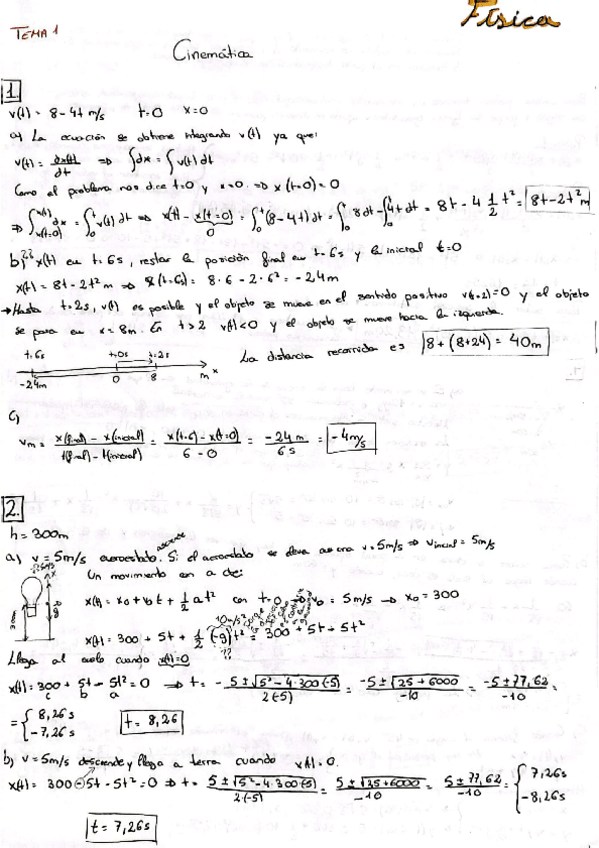 Física
TEMA 1
Cinemática
1.
v(t) = 8-4t m/s t=0 x=0
a) La ecuación se obtiene integrando v(t) ya que:
v(t) = dx(t)/dt ⇒ ∫dx = ∫v(t) dt
Como el problema nos dice t=0 y x=0 ⇒ x(t=0) = 0
⇒ ∫_{x(t=0)}^{x(t)} dx = ∫_0^t v(t) dt ⇒ x(t) - x(t=0) = ∫_0^t (8-4t) dt = ∫_0^t 8 dt - ∫_0^t 4t dt = 8t - 4 1/2 t² = 8t-2t² m
0
b) x(t) en t=6s, restar la posición final en t=6s y la inicial t=0
x(t) = 8t-2t² m ⇒ x(t=6) = 8·6 - 2·6² = -24m
→ Hasta t=2s, v(t) es posible y el objeto se mueve en el sentido positivo v(t=2)=0 y el objeto
se para en x=8m. En t>2 v(t)<0 y el objeto se mueve hacia la izquierda.
t=6s t=0s t=2s
-24m 0 8 m x
La distancia recorrida es 8+(8+24) = 40m
c)
vm = x(final) - x(inicial) / t(final) - t(inicial) = x(t=6) - x(t=0) / 6-0 = -24 m / 6 s = -4m/s
2.
h=300m
a) v=5m/s aerostato. Si el aerostato se eleva a v=5m/s ⇒ v inicial = 5m/s
asciende
Un movimiento con a de:
x(t) = x0 + v0 t + 1/2 a t² con t=0 ⇒ v0 = 5m/s → x0 = 300
10m/s²
x(t) = 300 + 5t + 1/2 (-g) t² = 300 + 5t - 5t²
Llega al suelo cuando x(t)=0
x(t) = 300 + 5t - 5t² = 0 ⇒ t = -5±√(5²-4·300(-5)) / 2(-5) = -5±√(25+6000) / -10 = -5±77,62 / -10 =
c b a
= { 8,26s
-7,26s
t = 8,26
b) v=5m/s desciende y llega a tierra cuando x(t)=0.
x(t) = 300-5t-5t²=0 ⇒ t = 5±√(5²-4·300(-5)) / 2·(-5) = 5±√(25+6000) / -10 = 5±77,62 / -10 = { 7,26s
-8,26s
t=7,26s